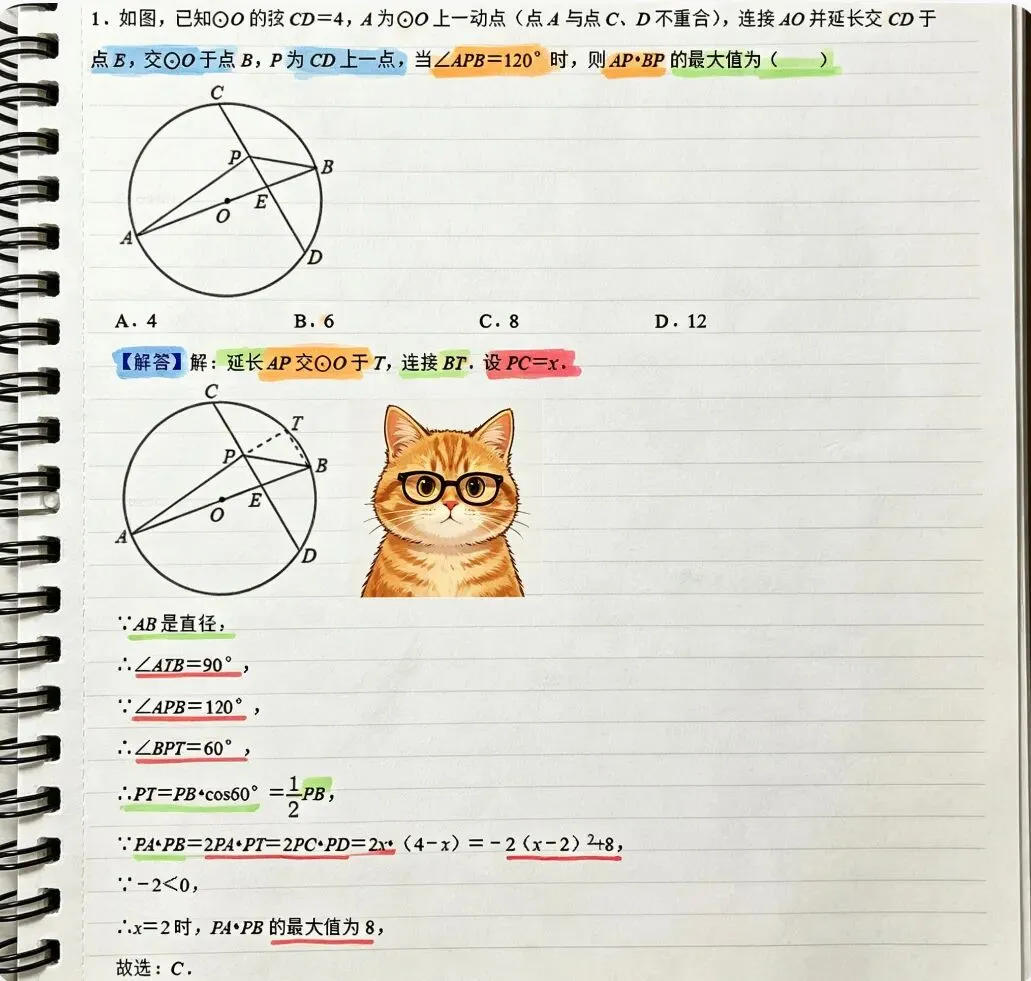 1．如图，已知⊙O的弦CD＝4，A为⊙O上一动点（点A与点C、D不重合），连接AO并延长交CD于
点E，交⊙O于点B，P为CD上一点，当∠APB＝120°时，则AP•BP的最大值为（　　）
C
P
B
O
E
A
D
A．4 B．6 C．8 D．12
【解答】解：延长AP交⊙O于T，连接BT．设PC＝x．
C
T
P
B
O
E
A
D
∵AB是直径，
∴∠ATB＝90°，
∵∠APB＝120°，
∴∠BPT＝60°，
∴PT＝PB•cos60°＝1/2PB，
∵PA•PB＝2PA•PT＝2PC•PD＝2x•（4－x）＝－2（x－2）²+8，
∵－2＜0，
∴x＝2时，PA•PB的最大值为8，
故选：C．